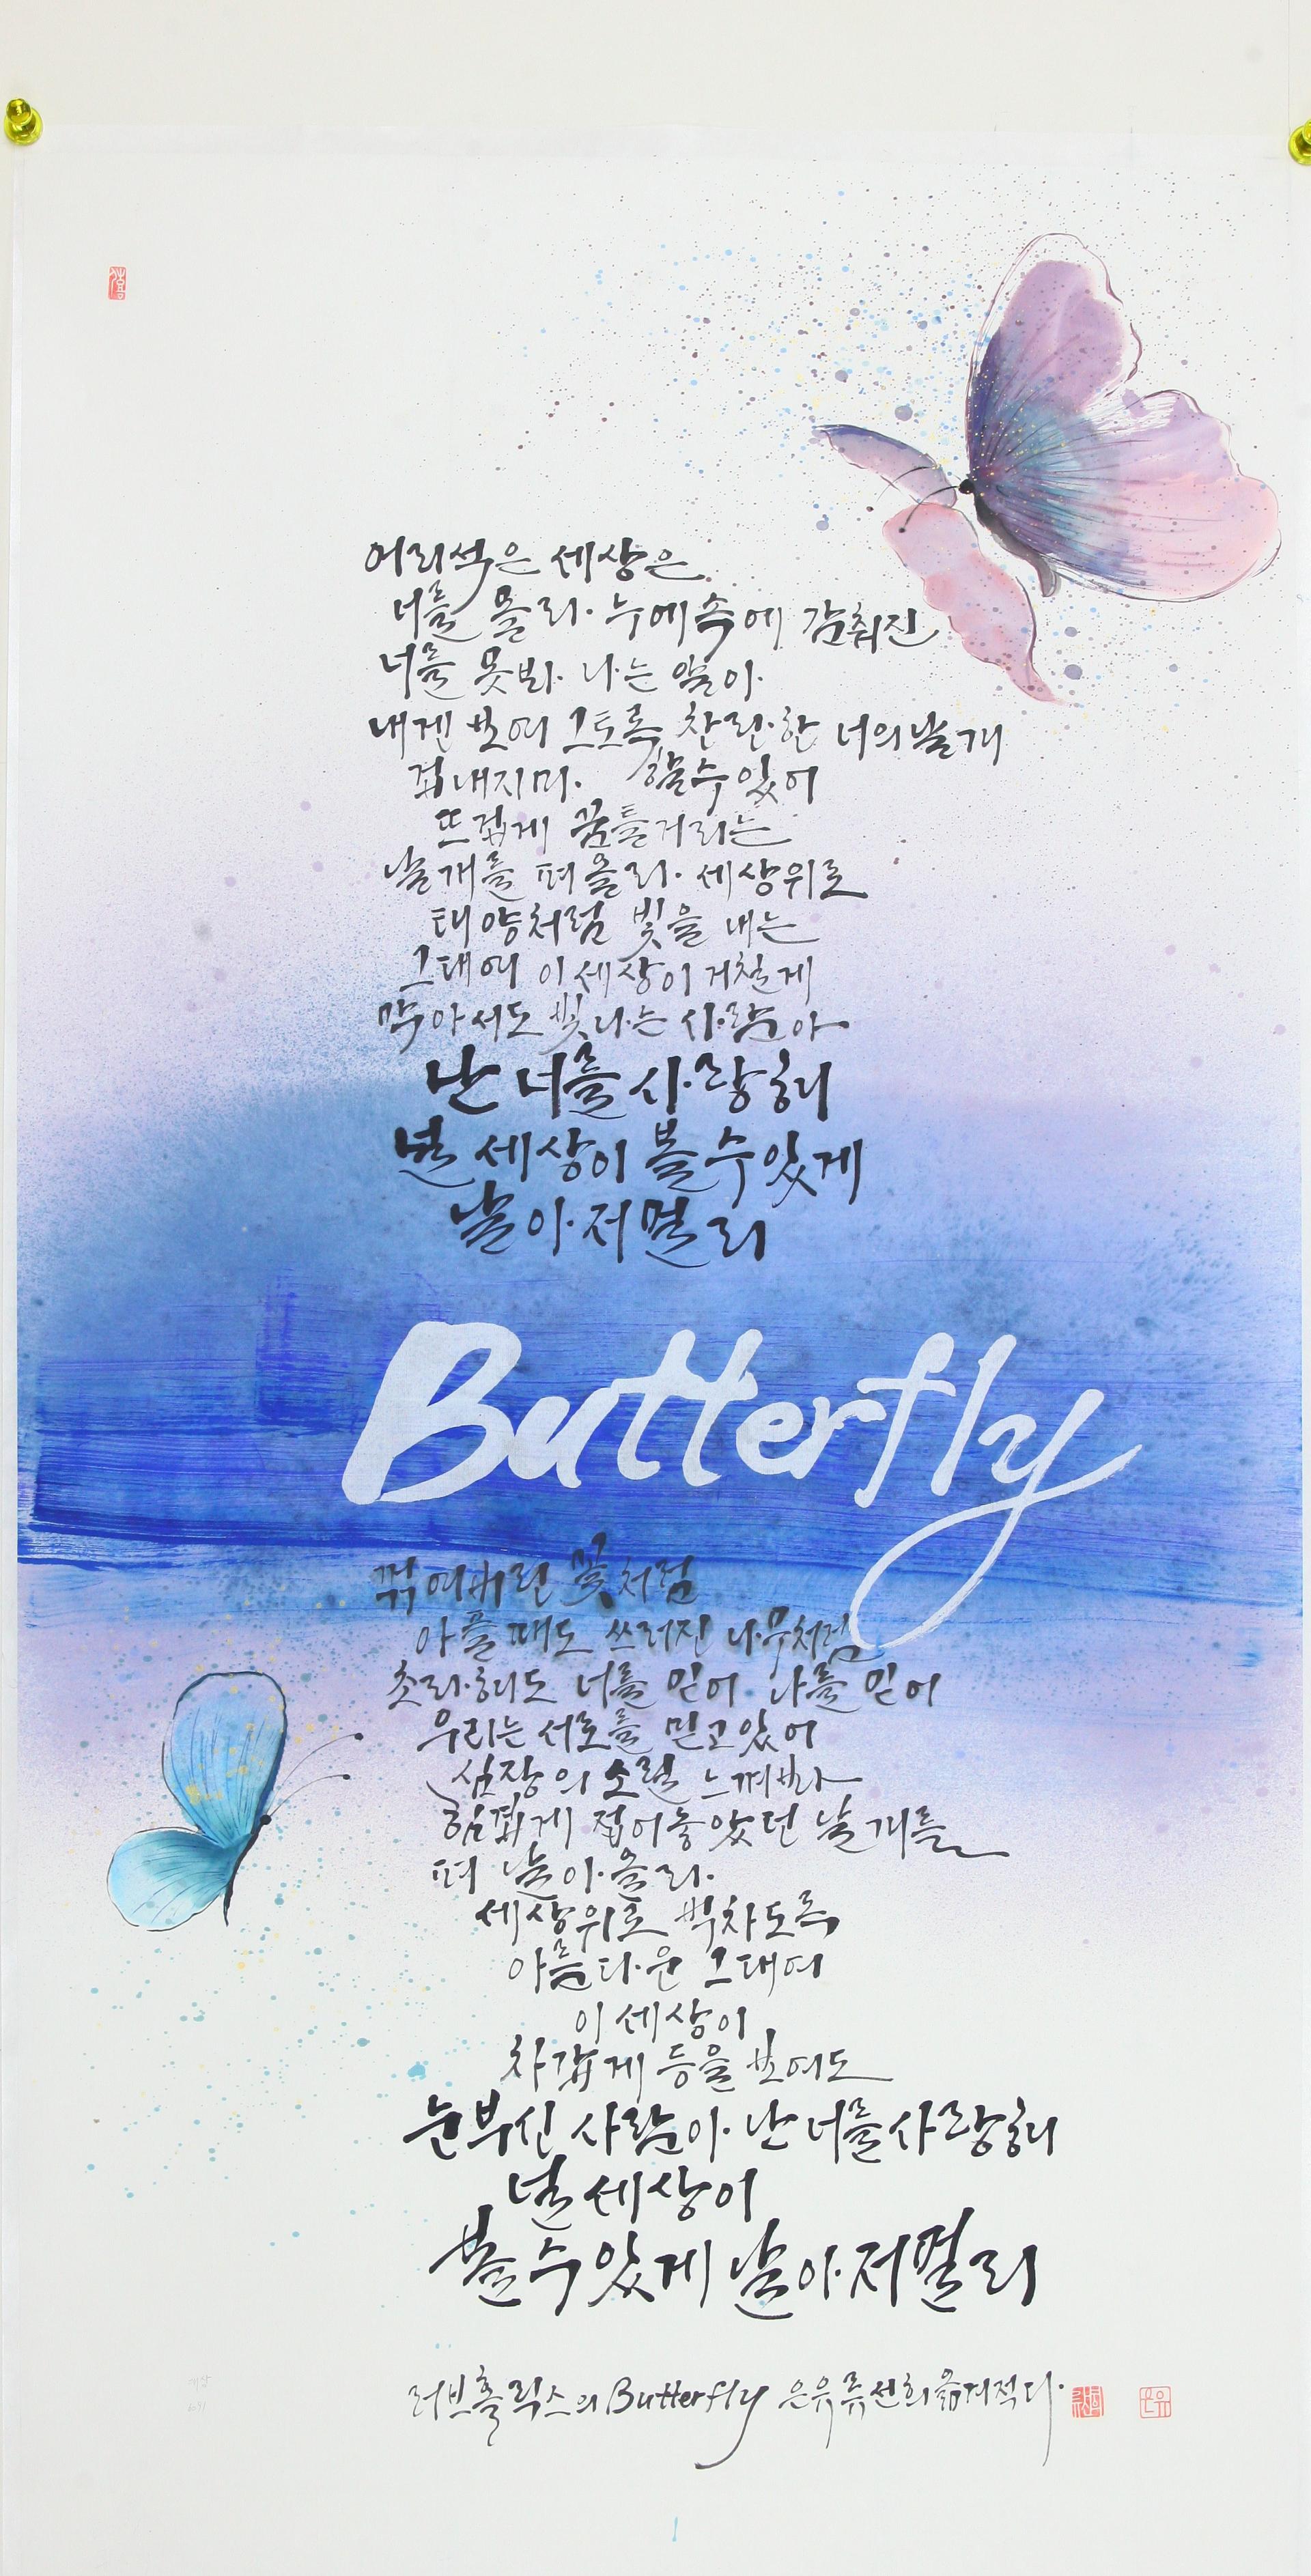 어리석은 세상은
너를 몰라 누에 속에 감춰진
너를 못봐 나는 알아
내겐 보여 그토록 찬란한 너의 날개
겁내지마 할 수 있어
뜨겁게 꿈틀거리는
날개를 펴 올라 세상위로
태양처럼 빛을 내는
그대여 이 세상이 거칠게
막아서도 빛나는 사람아
난 너를 사랑해
널 세상이 볼 수 있게
날아 저 멀리
Butterfly
꺾여버린 꽃처럼
아플때도 쓰러진 나무처럼
초라해도 너를 믿어 나를 믿어
우리는 서로를 믿고 있어
심장의 소릴 느껴봐
힘겹게 접어놓았던 날개를
펴 날아올라
세상위로 벅차도록
아름다운 그대여
이 세상이
차갑게 등을 보여도
눈부신 사람아 난 너를 사랑해
널 세상이
볼 수 있게 날아 저 멀리
러브홀릭스의 Butterfly 은유 류선희 옮겨적다